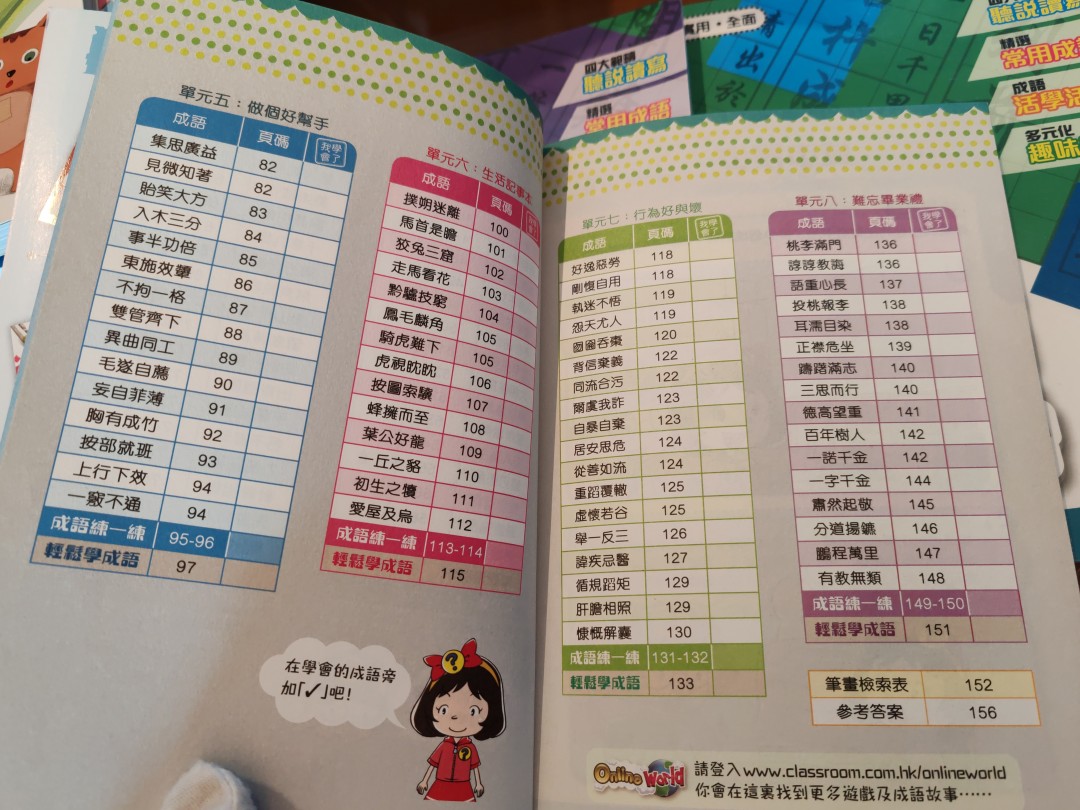 單元五：做個好幫手
成語 頁碼 我學會了
集思廣益 82
見微知著 82
貽笑大方 83
入木三分 84
事半功倍 85
東施效顰 86
不拘一格 87
雙管齊下 88
異曲同工 89
毛遂自薦 90
妄自菲薄 91
胸有成竹 92
按部就班 93
上行下效 94
一竅不通 94
成語練一練 95-96
輕鬆學成語 97
單元六：生活記事本
成語 頁碼
撲朔迷離 100
馬首是瞻 101
狡兔三窟 102
走馬看花 103
黔驢技窮 104
鳳毛麟角 105
騎虎難下 105
虎視眈眈 106
按圖索驥 107
蜂擁而至 108
葉公好龍 109
一丘之貉 110
初生之犢 111
愛屋及烏 112
成語練一練 113-114
輕鬆學成語 115
在學會的成語旁
加「✓」吧！
單元七：行為好與壞
成語 頁碼 我學會了
好逸惡勞 118
剛愎自用 118
執迷不悟 119
怨天尤人 119
囫圇吞棗 120
背信棄義 122
同流合污 122
爾虞我詐 123
自暴自棄 123
居安思危 124
從善如流 124
重蹈覆轍 125
虛懷若谷 125
舉一反三 126
諱疾忌醫 127
循規蹈矩 129
肝膽相照 129
慷慨解囊 130
成語練一練 131-132
輕鬆學成語 133
單元八：難忘畢業禮
成語 頁碼 我學會了
桃李滿門 136
諄諄教誨 136
語重心長 137
投桃報李 138
耳濡目染 138
正襟危坐 139
躊躇滿志 140
三思而行 140
德高望重 141
百年樹人 142
一諾千金 142
一字千金 144
肅然起敬 145
分道揚鑣 146
鵬程萬里 147
有教無類 148
成語練一練 149-150
輕鬆學成語 151
筆畫檢索表 152
參考答案 156
Online World
請登入www.classroom.com.hk/onlineworld
你會在這裏找到更多遊戲及成語故事……
四大範疇
聽說讀寫
精選
常用成語
實用・全面
青出於
日千里
聽說讀寫
精選
常用成
成語
活學活
多元化
趣味